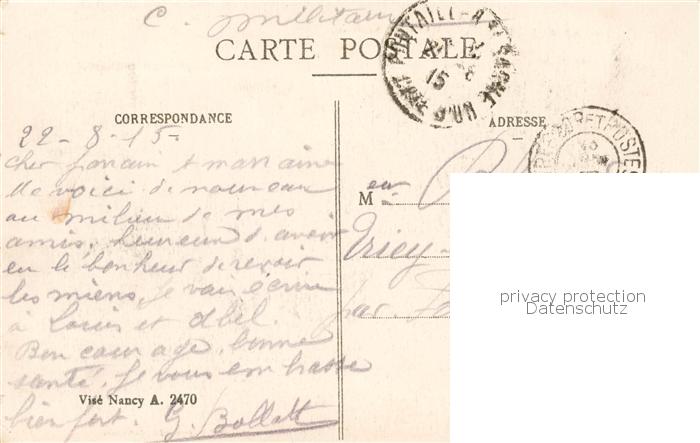 C. militaire
CARTE POSTALE
CORRESPONDANCE
ADRESSE
22-8-15-
Cher parrain et marraine
Me voici de nouveau
au milieu de mes
amis, heureux d'avoir
eu le bonheur de revoir
les miens, je vais écrire
à Louis et Abel.
Bon courage, bonne
santé, je vous embrasse
bien fort. G. Bollatt
M
Visé Nancy A. 2470
15
POSTES
privacy protection
Datenschutz